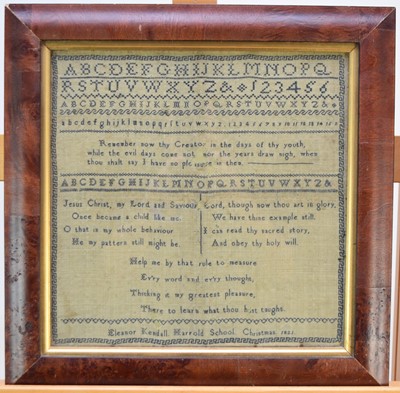 ABCDEFGHIJKLMNOPQ
RSTUVWXYZ& 123456
ABCDEFGHIJKLMNOPQRSTUVWXYZ&
abcdefghijklmnopqrſstuvwxyz
Remember now thy Creator in the days of thy youth,
while the evil days come not, nor the years draw nigh, when
thou shalt say I have no pleasure in them
ABCDEFGHIJKLMNOPQRSTUVWXYZ&
Jesus Christ, my Lord and Saviour Lord, though now thou art in glory,
Once became a child like me. We have thine example still.
O that in my whole behaviour I can read thy sacred story,
He my pattern still might be. And obey thy holy will.
Help me by that rule to measure
Ev'ry word and ev'ry thought,
Thinking it my greatest pleasure,
There to learn what thou hast taught.
Eleanor Kendall. Harrold School. Christmas.